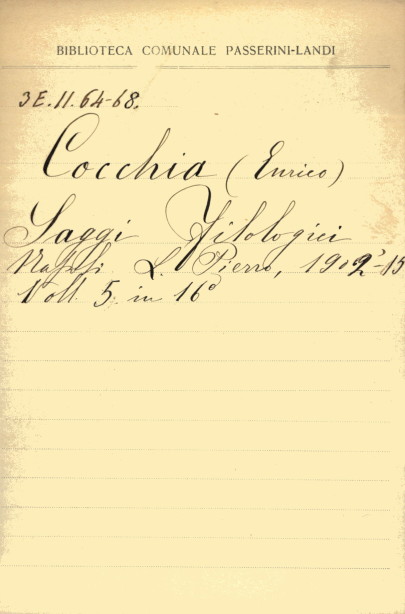 BIBLIOTECA COMUNALE PASSERINI-LANDI
3E.11.64-68.
Cocchia (Enrico)
Saggi Filologici
Napoli L. Pierro, 1902-15
Voll. 5. in 16º